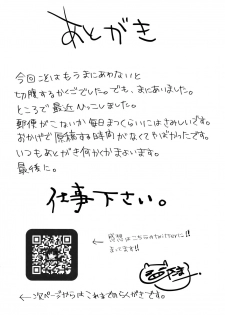 あとがき
今回ことはもうまにあわないと
切腹するかくごでした。でも、まにあいました。
ところで最近ひっこしました。
郵便がこないか毎日まつくらいにはさみしいです。
おかげで原稿する時間がなくてやばかったです。
いつもあとがき何かくかまよいます。
最後に。
仕事下さい。
← 感想はこちらのtwitterに!!
まってます!!
← 次ページからはこれまでのらくがきです。